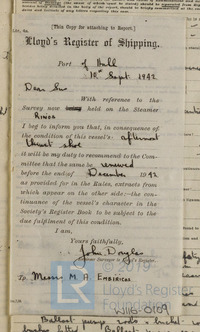 [This Copy for attaching to Report.]
Lloyd's Register of Shipping.
Port of Hull
10th Sept. 1942
Dear Sir
With reference to the
Survey now held on the Steamer
RINOS
I beg to inform you that, in consequence of
the condition of this vessel's afternoon
thrust shoe
it will be my duty to recommend to the Com-
mittee that the same be renewed
before the end of December 1942
as provided for in the Rules, extracts from
which appear on the other side—the con-
tinuance of the vessel's character in the
Society's Register Book to be subject to the
due fulfilment of this condition.
I am,
Yours faithfully,
John
Surveyor to Lloyd's Register.
To Messrs M A EMBIRICOS
© 2019
Lloyd's Register
Foundation
W1116-0109
Ballast pump rods + bucket